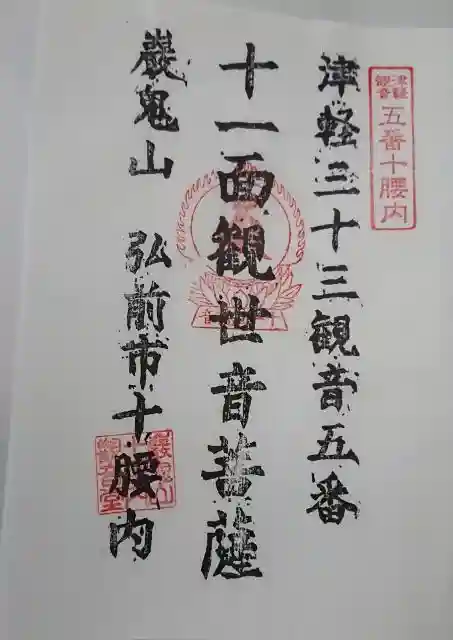 津軽
観音
五番十腰内
津軽三十三観音五番
十一面観世音菩薩
巌鬼山 弘前市十腰内